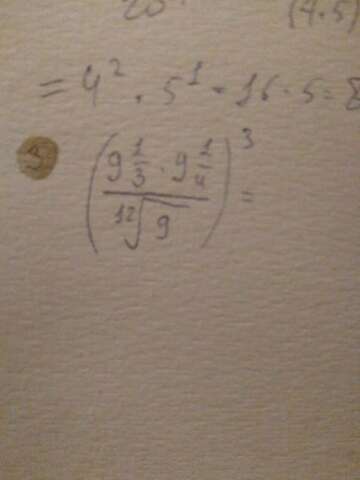 20 (4·5)
= 4² · 5¹ = 16 · 5 = 8
5
(9^{1/3} · 9^{1/4} / ¹²√9)³ =